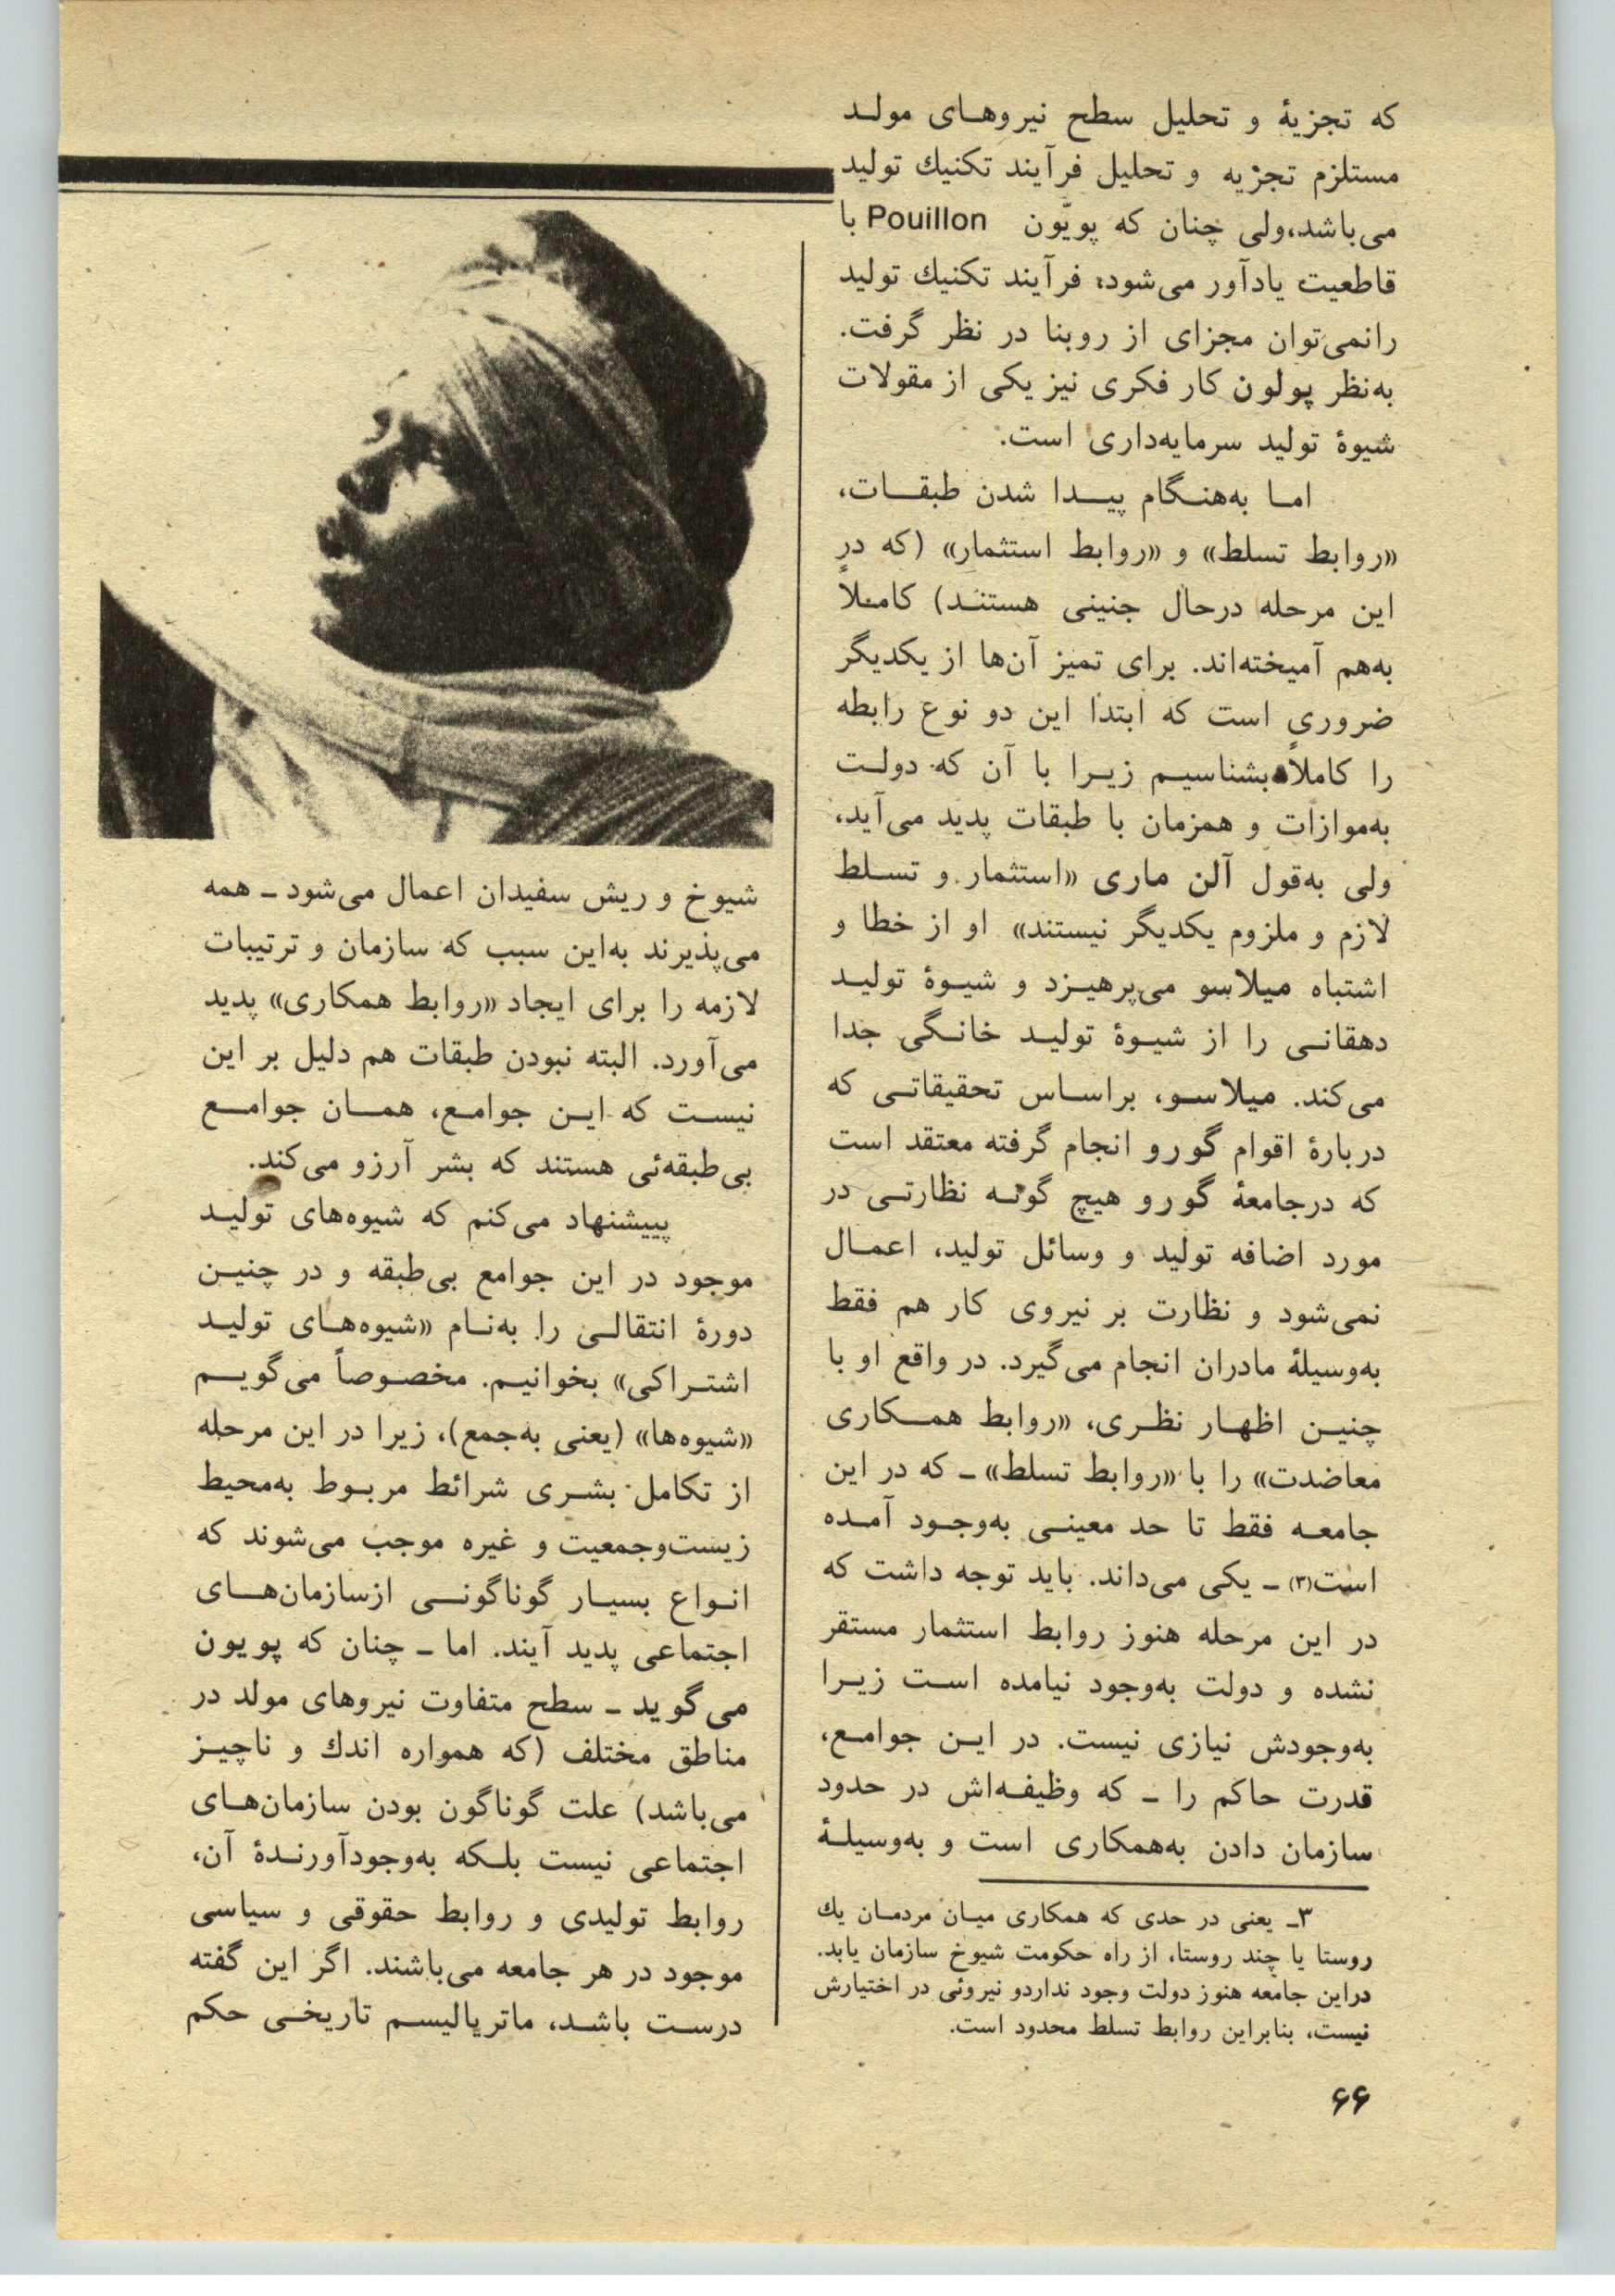 که تجزیهٔ و تحلیل سطح نیروهای مولد
مستلزم تجزیه و تحلیل فرآیند تکنیك تولید
می‌باشد،ولی چنان که پویّون Pouillon با
قاطعیت یادآور می‌شود: فرآیند تکنیك تولید
رانمی‌توان مجزای از روبنا در نظر گرفت.
به‌نظر پولون کار فکری نیز یکی از مقولات
شیوهٔ تولید سرمایه‌داری است.
اما به‌هنگام پیدا شدن طبقات،
«روابط تسلط» و «روابط استثمار» (که در
این مرحله درحال جنینی هستند) کاملاً
به‌هم آمیخته‌اند. برای تمیز آن‌ها از یکدیگر
ضروری است که ابتدا این دو نوع رابطه
را کاملاً بشناسیم زیرا با آن که دولت
به‌موازات و همزمان با طبقات پدید می‌آید،
ولی به‌قول آلن ماری «استثمار و تسلط
لازم و ملزوم یکدیگر نیستند» او از خطا و
اشتباه میلاسو می‌پرهیزد و شیوهٔ تولید
دهقانی را از شیوهٔ تولید خانگی جدا
می‌کند. میلاسو، براساس تحقیقاتی که
دربارهٔ اقوام گورو انجام گرفته معتقد است
که درجامعهٔ گورو هیچ گونه نظارتی در
مورد اضافه تولید و وسائل تولید، اعمال
نمی‌شود و نظارت بر نیروی کار هم فقط
به‌وسیلهٔ مادران انجام می‌گیرد. در واقع او با
چنین اظهار نظری، «روابط همکاری
معاضدت» را با «روابط تسلط» ـ که در این
جامعه فقط تا حد معینی به‌وجود آمده
است(۳) ـ یکی می‌داند. باید توجه داشت که
در این مرحله هنوز روابط استثمار مستقر
نشده و دولت به‌وجود نیامده است زیرا
به‌وجودش نیازی نیست. در این جوامع،
قدرت حاکم را ـ که وظیفه‌اش در حدود
سازمان دادن به‌همکاری است و به‌وسیلهٔ
۳ـ یعنی در حدی که همکاری میان مردمان یك
روستا یا چند روستا، از راه حکومت شیوخ سازمان یابد.
دراین جامعه هنوز دولت وجود نداردو نیروئی در اختیارش
نیست، بنابراین روابط تسلط محدود است.
شیوخ و ریش سفیدان اعمال می‌شود ـ همه
می‌پذیرند به‌این سبب که سازمان و ترتیبات
لازمه را برای ایجاد «روابط همکاری» پدید
می‌آورد. البته نبودن طبقات هم دلیل بر این
نیست که این جوامع، همان جوامع
بی‌طبقه‌ئی هستند که بشر آرزو می‌کند.
پییشنهاد می‌کنم که شیوه‌های تولید
موجود در این جوامع بی‌طبقه و در چنین
دورهٔ انتقالی را به‌نام «شیوه‌های تولید
اشتراکی» بخوانیم. مخصوصاً می‌گویم
«شیوه‌ها» (یعنی به‌جمع)، زیرا در این مرحله
از تکامل بشری شرائط مربوط به‌محیط
زیست‌وجمعیت و غیره موجب می‌شوند که
انواع بسیار گوناگونی ازسازمان‌های
اجتماعی پدید آیند. اما ـ چنان که پویون
می‌گوید ـ سطح متفاوت نیروهای مولد در
مناطق مختلف (که همواره اندك و ناچیز
می‌باشد) علت گوناگون بودن سازمان‌های
اجتماعی نیست بلکه به‌وجودآورندهٔ آن،
روابط تولیدی و روابط حقوقی و سیاسی
موجود در هر جامعه می‌باشند. اگر این گفته
درست باشد، ماتریالیسم تاریخی حکم
۶۶